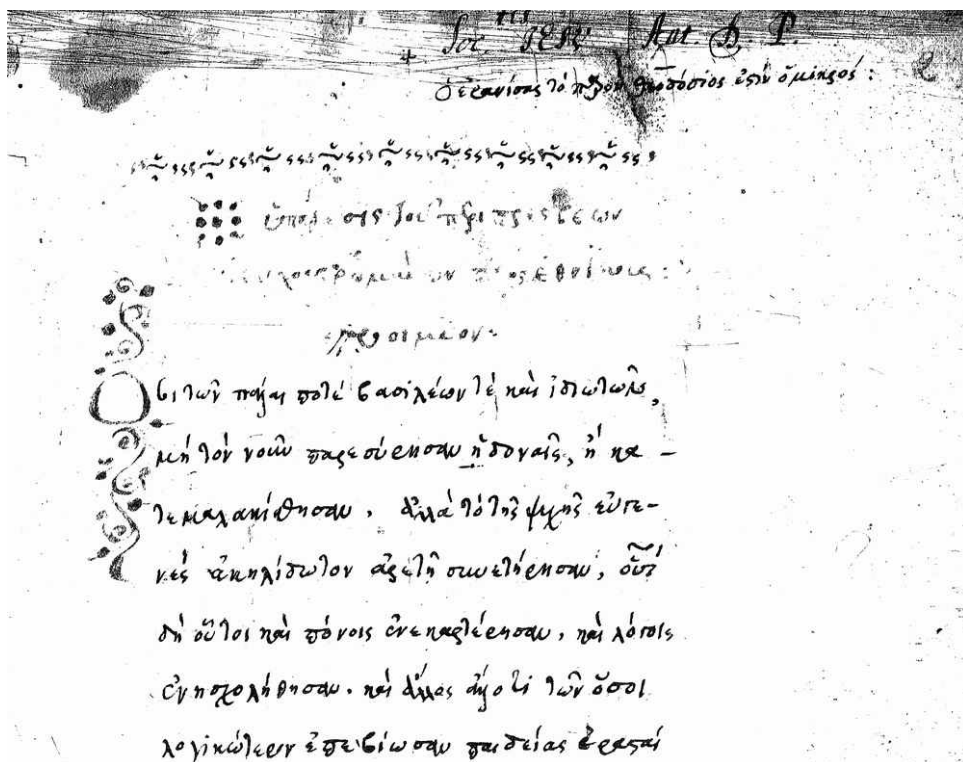 Soc^tis IESV Ant. D. P.
ὁ ἐρανίσας τὸ παρὸν θεοδόσιος ἐστὶν ὁ μικρός:
ὑπόθεσις τοῦ περὶ πρέσβεων
ῥωμαίων πρὸς ἐθνικούς:
προοίμιον:
Ὅσοι τῶν πάλαι ποτὲ βασιλέων τὲ καὶ ἰδιωτῶν,
μὴ τὸν νοῦν παρεσύρησαν ἡδοναῖς, ἢ κα-
τεμαλακίσθησαν, ἀλλὰ τὸ τῆς ψυχῆς εὐγε-
νὲς ἀκηλίδωτον ἀρετῇ συνετήρησαν,
δὴ οὗτοι καὶ πόνοις ἐνεκαρτέρησαν, καὶ λόγοις
ἐνησχολήθησαν. καὶ ἄλλος ἄλλο τι τῶν ὅσοι
λογικώτερον ἐπεβίωσαν παιδείας ἐρασταὶ